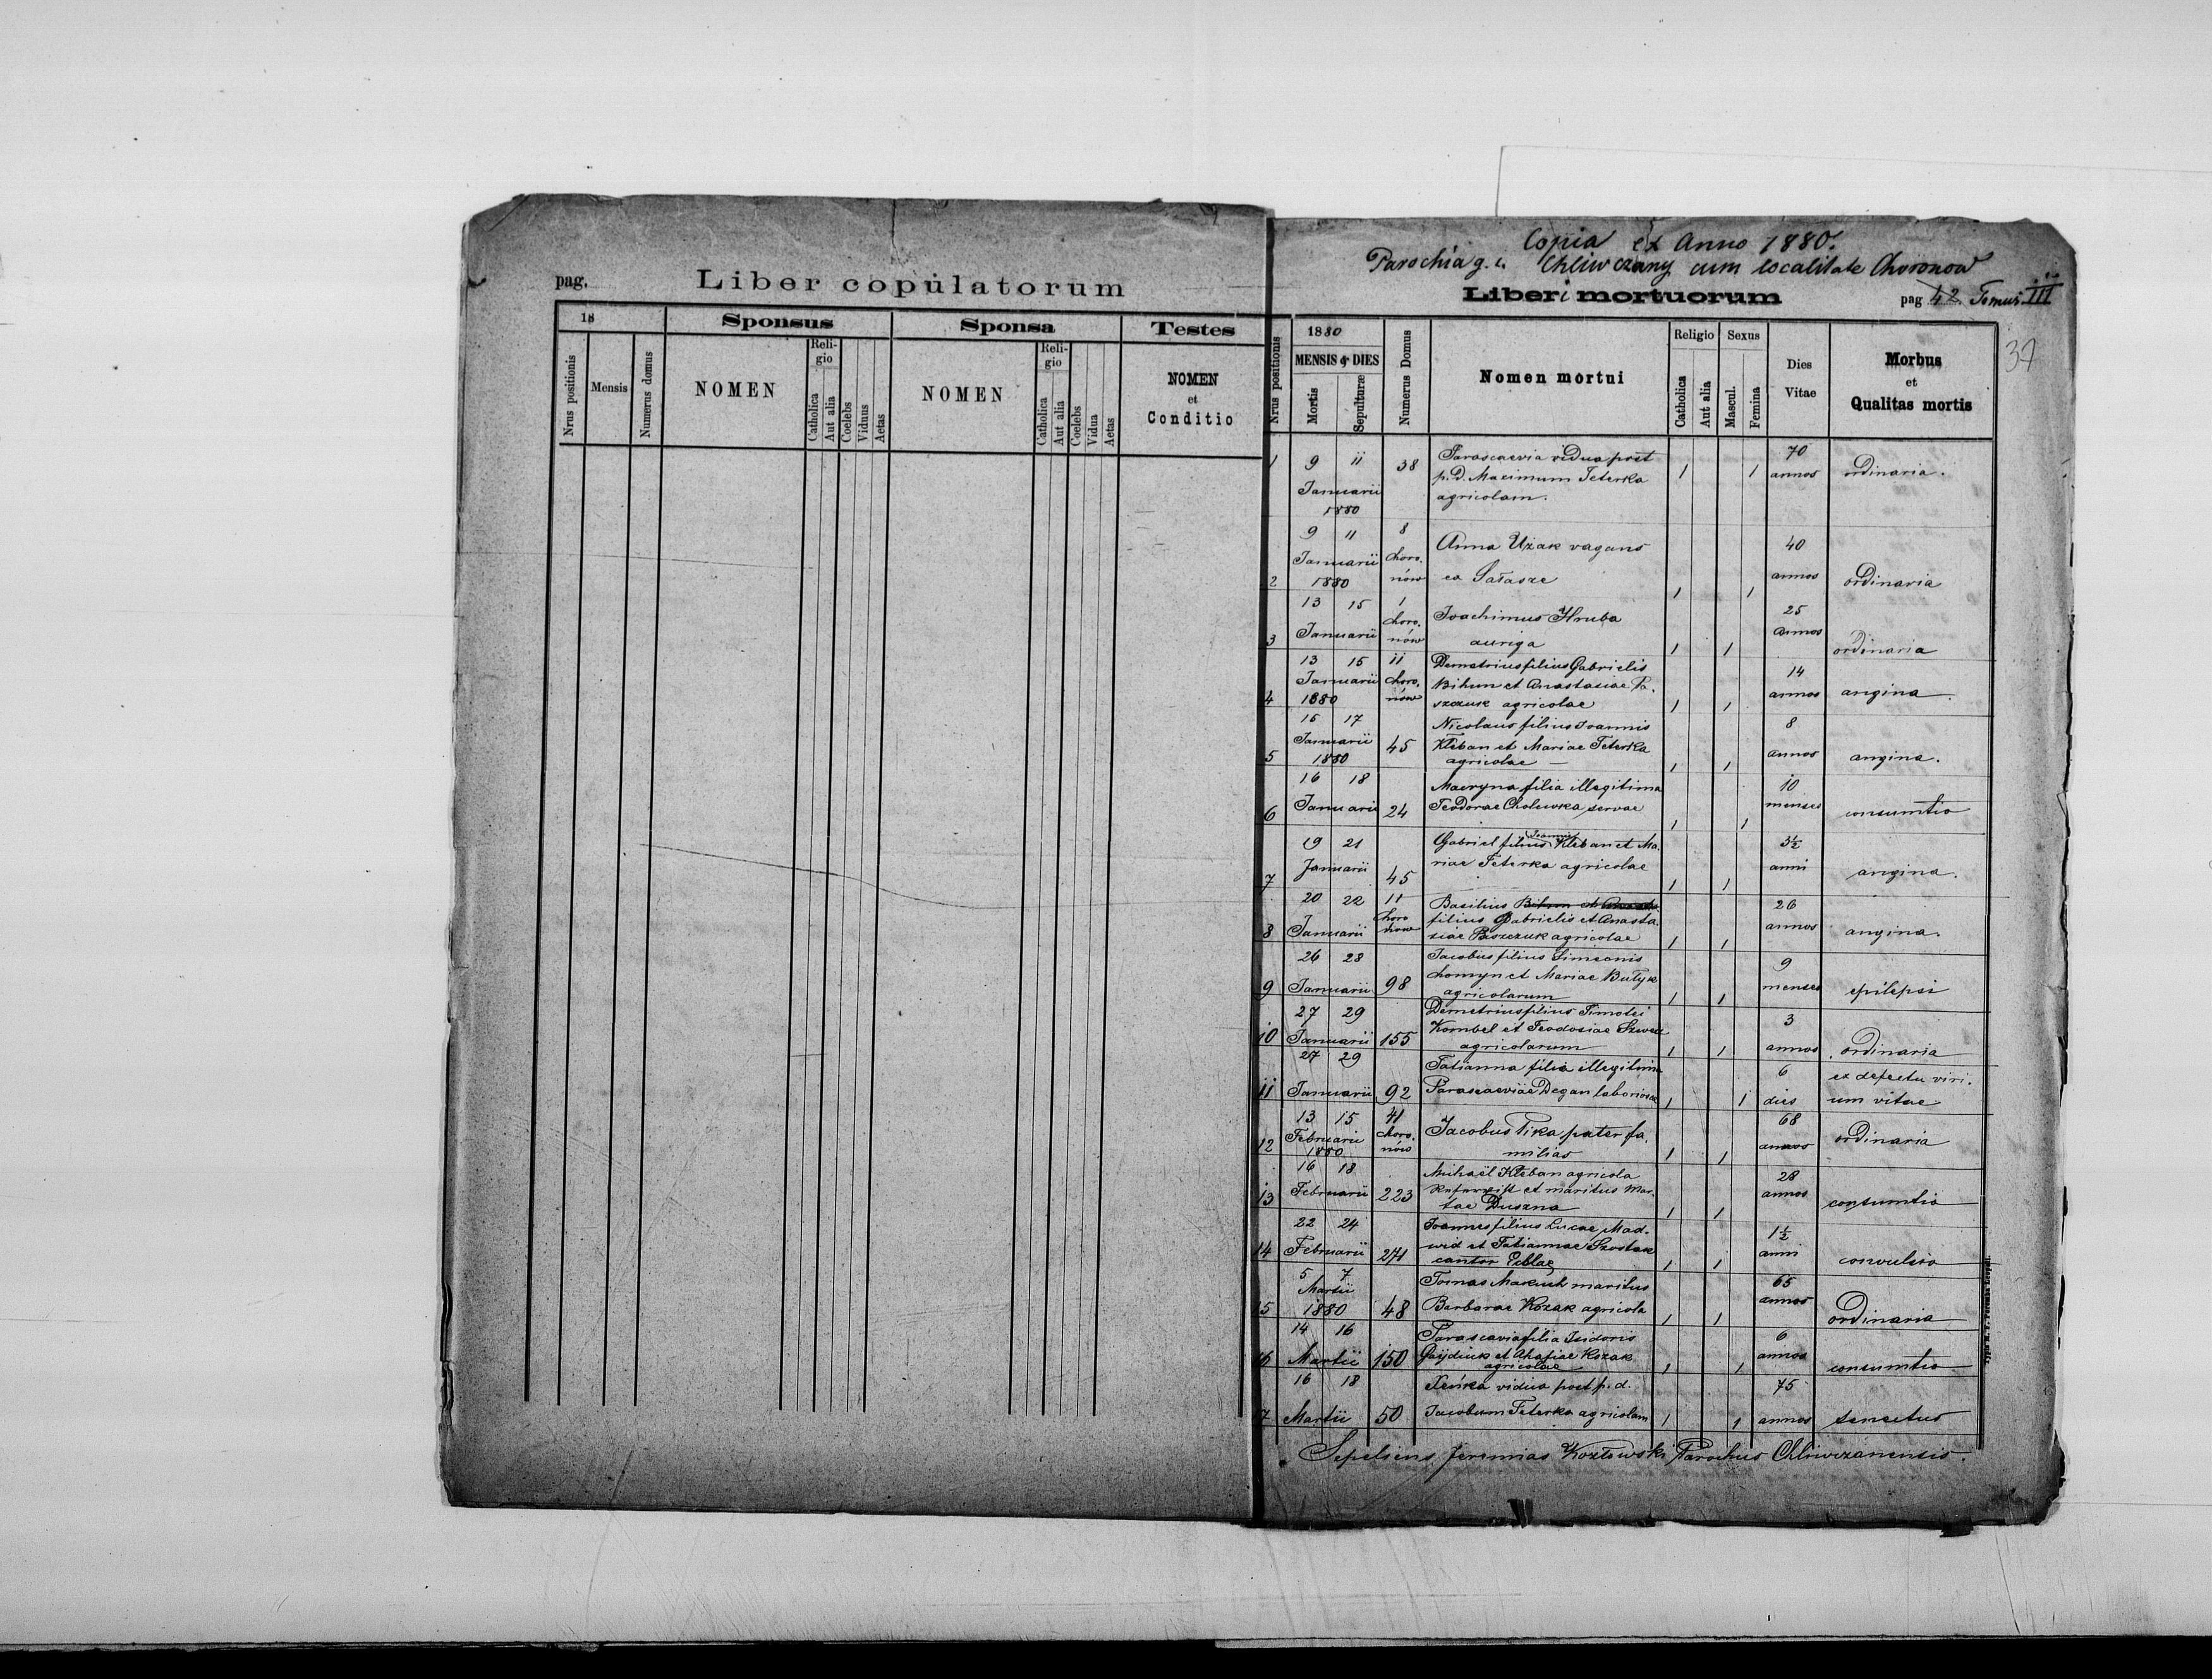 pag.
Liber copulatorum
18
Sponsus
Sponsa
Testes
Nrus positionis
Mensis
Numerus domus
NOMEN
Reli-
gio
Catholica
Aut alia
Coelebs
Viduus
Aetas
NOMEN
Reli-
gio
Catholica
Aut alia
Coelebs
Vidua
Aetas
NOMEN
et
Conditio
Copia ex Anno 1880.
Parochia g. c. Chliwczany cum localitate Choronow
Liberi mortuorum
pag 42 Tomus III
37
Nrus positionis
1880
MENSIS & DIES
Mortis
Sepulturæ
Numerus Domus
Nomen mortui
Religio
Catholica
Aut alia
Sexus
Mascul.
Femina
Dies
Vitae
Morbus
et
Qualitas mortis
1 9 11 Januarii 1880 38 Parascaevia vidua post 1 1 70 annos ordinaria.
p. D. Maximum Teterka
agricolam.
2 9 11 Januarii 1880 8 Choro. nów Anna Użak vagans 1 1 40 annos ordinaria
ex Sałasze
3 13 15 Januarii 1 Choro. nów Joachimus Hruba 1 1 25 annos ordinaria
auriga
4 13 15 Januarii 1880 11 Choro. nów Demetrius filius Gabrielis 1 1 14 annos angina
Bihun et Anastasiae Pa.
szczuk agricolae
5 15 17 Januarii 1880 45 Nicolaus filius Joannis 1 1 8 annos angina.
Kleban et Mariae Teterka
agricolae
6 16 18 Januarii 24 Maryna filia illegitima 1 1 10 menses consumtio
Teodorae Cholewka servae
7 19 21 Januarii 45 Gabriel filius Joannis Kleban et Ma. 1 1 3½ anni angina.
riae Teterka agricolae
8 20 22 Januarii 11 Choro now Basilius Bihun et Anasta 1 1 26 annos angina.
filius Gabrielis et Anasta.
siae Paszczuk agricolae
9 26 28 Januarii 98 Jacobus filius Simeonis 1 1 9 menses epilepsi
Chomyn et Mariae Butyk
agricolarum
10 27 29 Januarii 155 Demetrius filius Timotei 1 1 3 annos ordinaria
Kombel et Teodosiae Szwed
agricolarum
11 27 29 Januarii 92 Tatianna filia illegitima 1 1 6 dies ex defectu viri.
Parascaeviae Degan laboriosae um vitae
12 13 15 Februarii 1880 41 Choro. nów Jacobus Tika pater fa. 1 1 68 annos ordinaria
milias
13 16 18 Februarii 223 Michaël Kleban agricola 1 1 28 annos consumtio
et maritus Mar.
tae Duszna
14 22 24 Februarii 271 Joannes filius Lucae Mad. 1 1 1½ anni convulsio
wid et Tatiannae Szostak
cantor Eccl͠ae
15 5 7 Martii 1880 48 Tomas Makuch maritus 1 1 65 annos Ordinaria
Barbarae Kozak agricola
16 14 16 Martii 150 Parascavia filia Isidoris 1 1 6 annos consumtio
Gajdiuk et Ahafiae Kozak
agricolae
17 16 18 Martii 50 Xeńka vidua post p. d. 1 1 75 annos senectus
Jacobum Teterka agricolam
Sepeliens Jeremias Kozłowski Parochus Chliwczanensis.